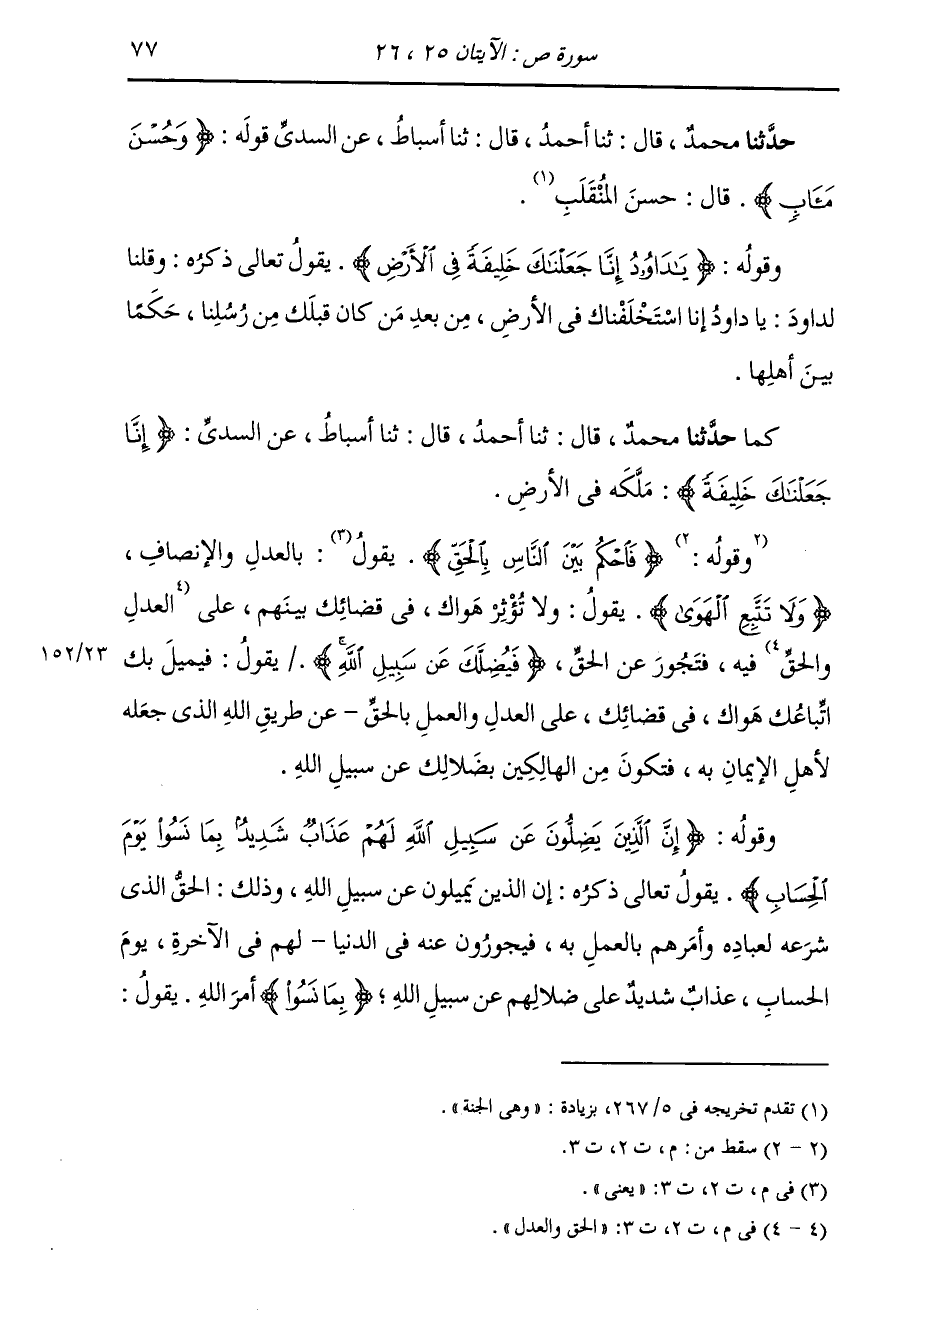 سورة ص : الآيتان ٢٥ ، ٢٦
٧٧
حدَّثنا محمدٌ ، قال : ثنا أحمدُ ، قال : ثنا أسباطُ ، عن السدىِّ قولَه : ﴿ وَحُسْنَ
مَـَٔابٍ ﴾ . قال : حسنَ المُنْقَلَبِ(١) .
وقولُه : ﴿ يَـٰدَاوُۥدُ إِنَّا جَعَلْنَـٰكَ خَلِيفَةً فِى ٱلْأَرْضِ ﴾ . يقولُ تعالى ذكرُه : وقلنا
لداودَ : يا داودُ إنا اسْتَخْلَفْناك فى الأرضِ ، مِن بعدِ مَن كان قبلَك مِن رُسُلِنا ، حَكَمًا
بينَ أهلِها .
كما حدَّثنا محمدٌ ، قال : ثنا أحمدُ ، قال : ثنا أسباطُ ، عن السدىِّ : ﴿ إِنَّا
جَعَلْنَـٰكَ خَلِيفَةً ﴾ : مَلَّكَه فى الأرضِ .
(٢وقولُه :٢) ﴿ فَٱحْكُم بَيْنَ ٱلنَّاسِ بِٱلْحَقِّ ﴾ . يقولُ(٣) : بالعدلِ والإنصافِ ،
﴿ وَلَا تَتَّبِعِ ٱلْهَوَىٰ ﴾ . يقولُ : ولا تُؤْثِرْ هَواك ، فى قضائِك بينَهم ، على (٤العدلِ
والحقِّ٤) فيه ، فتَجُورَ عن الحقِّ ، ﴿ فَيُضِلَّكَ عَن سَبِيلِ ٱللَّهِ ۚ ﴾ ./ يقولُ : فيميلَ بك
١٥٢/٢٣
اتِّباعُك هَواك ، فى قضائِك ، على العدلِ والعملِ بالحقِّ – عن طريقِ اللهِ الذى جعَله
لأهلِ الإيمانِ به ، فتكونَ مِن الهالِكِين بضَلالِك عن سبيلِ اللهِ .
وقولُه : ﴿ إِنَّ ٱلَّذِينَ يَضِلُّونَ عَن سَبِيلِ ٱللَّهِ لَهُمْ عَذَابٌ شَدِيدٌۢ بِمَا نَسُوا۟ يَوْمَ
ٱلْحِسَابِ ﴾ . يقولُ تعالى ذكرُه : إن الذين يَميلون عن سبيلِ اللهِ ، وذلك : الحقُّ الذى
شرَعه لعبادِه وأمَرهم بالعملِ به ، فيجورُون عنه فى الدنيا – لهم فى الآخرةِ ، يومَ
الحسابِ ، عذابٌ شديدٌ على ضلالِهم عن سبيلِ اللهِ ؛ ﴿ بِمَا نَسُوا۟ ﴾ أمرَ اللهِ . يقولُ :
(١) تقدم تخريجه فى ٥/ ٢٦٧، بزيادة : «وهى الجنة» .
(٢ – ٢) سقط من : م ، ت ٢، ت ٣.
(٣) فى م ، ت ٢، ت ٣: «يعنى» .
(٤ – ٤) فى م ، ت ٢، ت ٣: «الحق والعدل» .